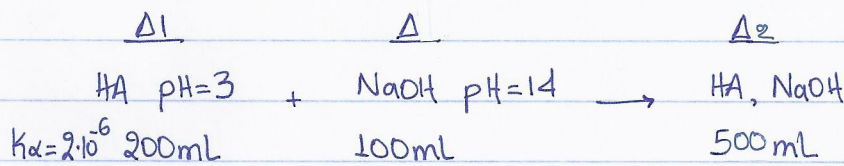 Δ1 Δ Δ2
HA pH=3 + NaOH pH=14 → HA, NaOH
Kα=2·10⁻⁶ 200mL 100mL 500mL